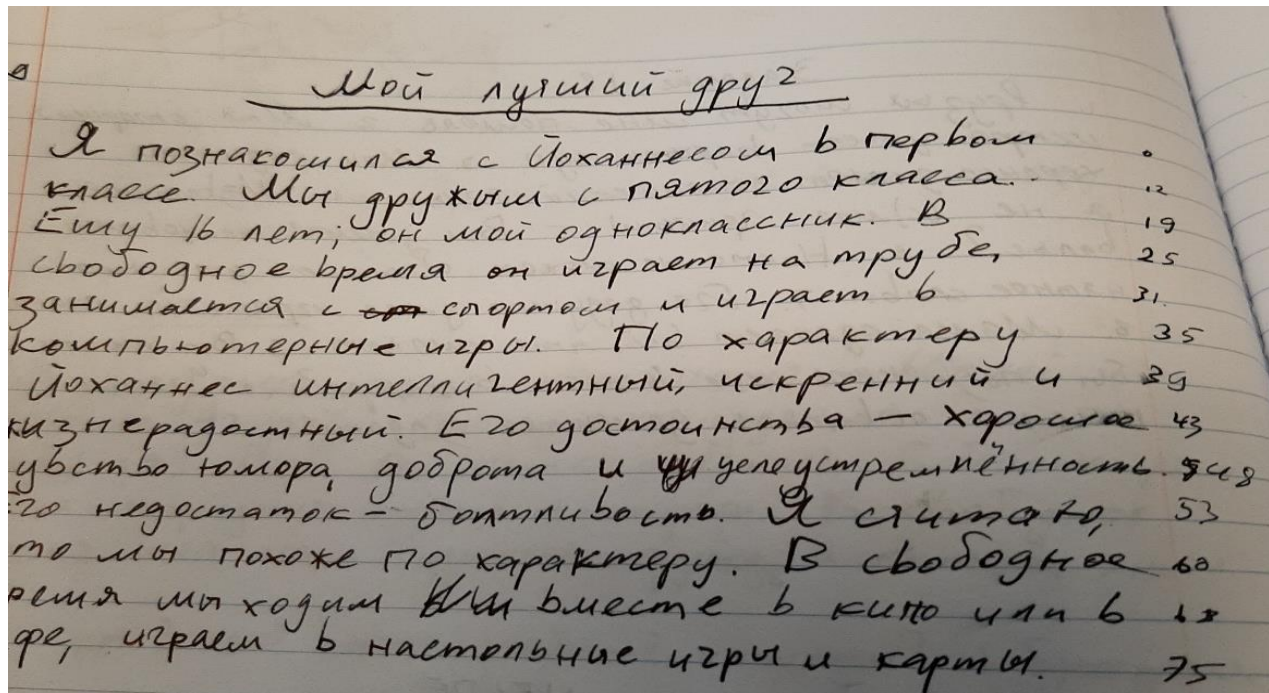 Мой лучший друг
Я познакомился с Йоханнесом в первом
классе. Мы дружым с пятого класса. 12
Ему 16 лет; он мой одноклассник. В 19
свободное время он играет на трубе, 25
занимается с спортом и играет в 31.
компьютерные игры. По характеру 35
Йоханнес интеллигентный, искренний и 39
жизнерадостный. Его достоинства – хорошое 43
увство юмора, доброта и целеустремлённость. 48
Его недостаток – болтливость. Я считаю, 53
то мы похоже по характеру. В свободное 60
ремя мы ходим вместе в кино или в
фе, играем в настольные игры и карты. 75